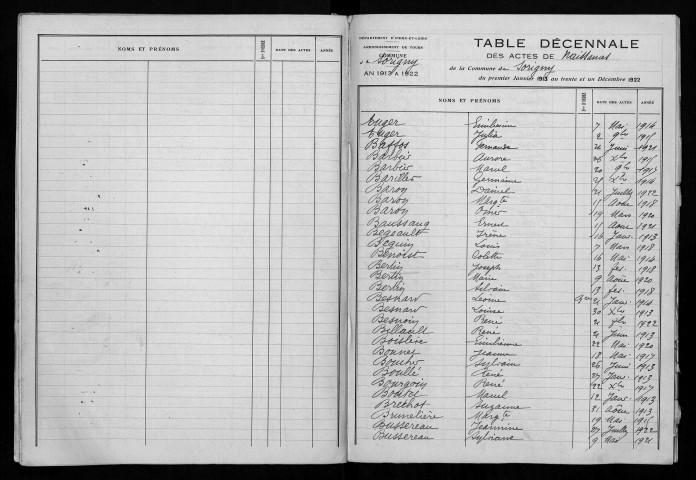 NOMS ET PRÉNOMS DATE DES ACTES ANNÉE
DÉPARTEMENT D'INDRE-ET-LOIRE
ARRONDISSEMENT DE TOURS
COMMUNE
de Sorigny
AN 1913 A 1922
TABLE DÉCENNALE
DES ACTES DE Naissances
de la Commune de Sorigny
du premier Janvier 1913 au trente et un Décembre 1922
NOMS ET PRÉNOMS DATE DES ACTES ANNÉE
Auger Emilienne 7 Mai 1914
Auger Julia 2 9bre
Baffos Fernande Juin 1921
Barbier Aurore Xbre
Barbier Marcel 20 9bre
Barillet Germaine Xbre 1914
Baron Daniel 21 Juillet 1922
Baron Margte 15 Aout 1918
Baron 19 Mars 1920
Baussang Ernest 15 Aout 1921
Begeault Irène 16 Janv. 1913
Bequin Louis 7 Mars 1918
Benoist Colette 16 Mai 1914
Bertin Joseph 13 fév. 1918
Bertin Marie 9 Août 1920
Bertin Sylvain 13 fév. 1918
Besnard Leone 21 Janv. 1914
Besnard Louise 30 Xbre 1913
Besnoin René 21 1922
Billault René 21 Juin 1913
Boislève Emilienne 22 Mai 1920
Bonnet Jeanne 18 Mai 1917
Boucher Sylvain 26 Juin 1913
Boullé René 27 Janv. 1913
Bourgoin René 22 Xbre 1917
Marcel 12 Janv. 1913
Brechot Suzanne 21 Août 1913
Brunelière Margte 19 Mai
Bussereau Jeannine 27 Juillet 1922
Bussereau Sylviane 9 Mai 1921